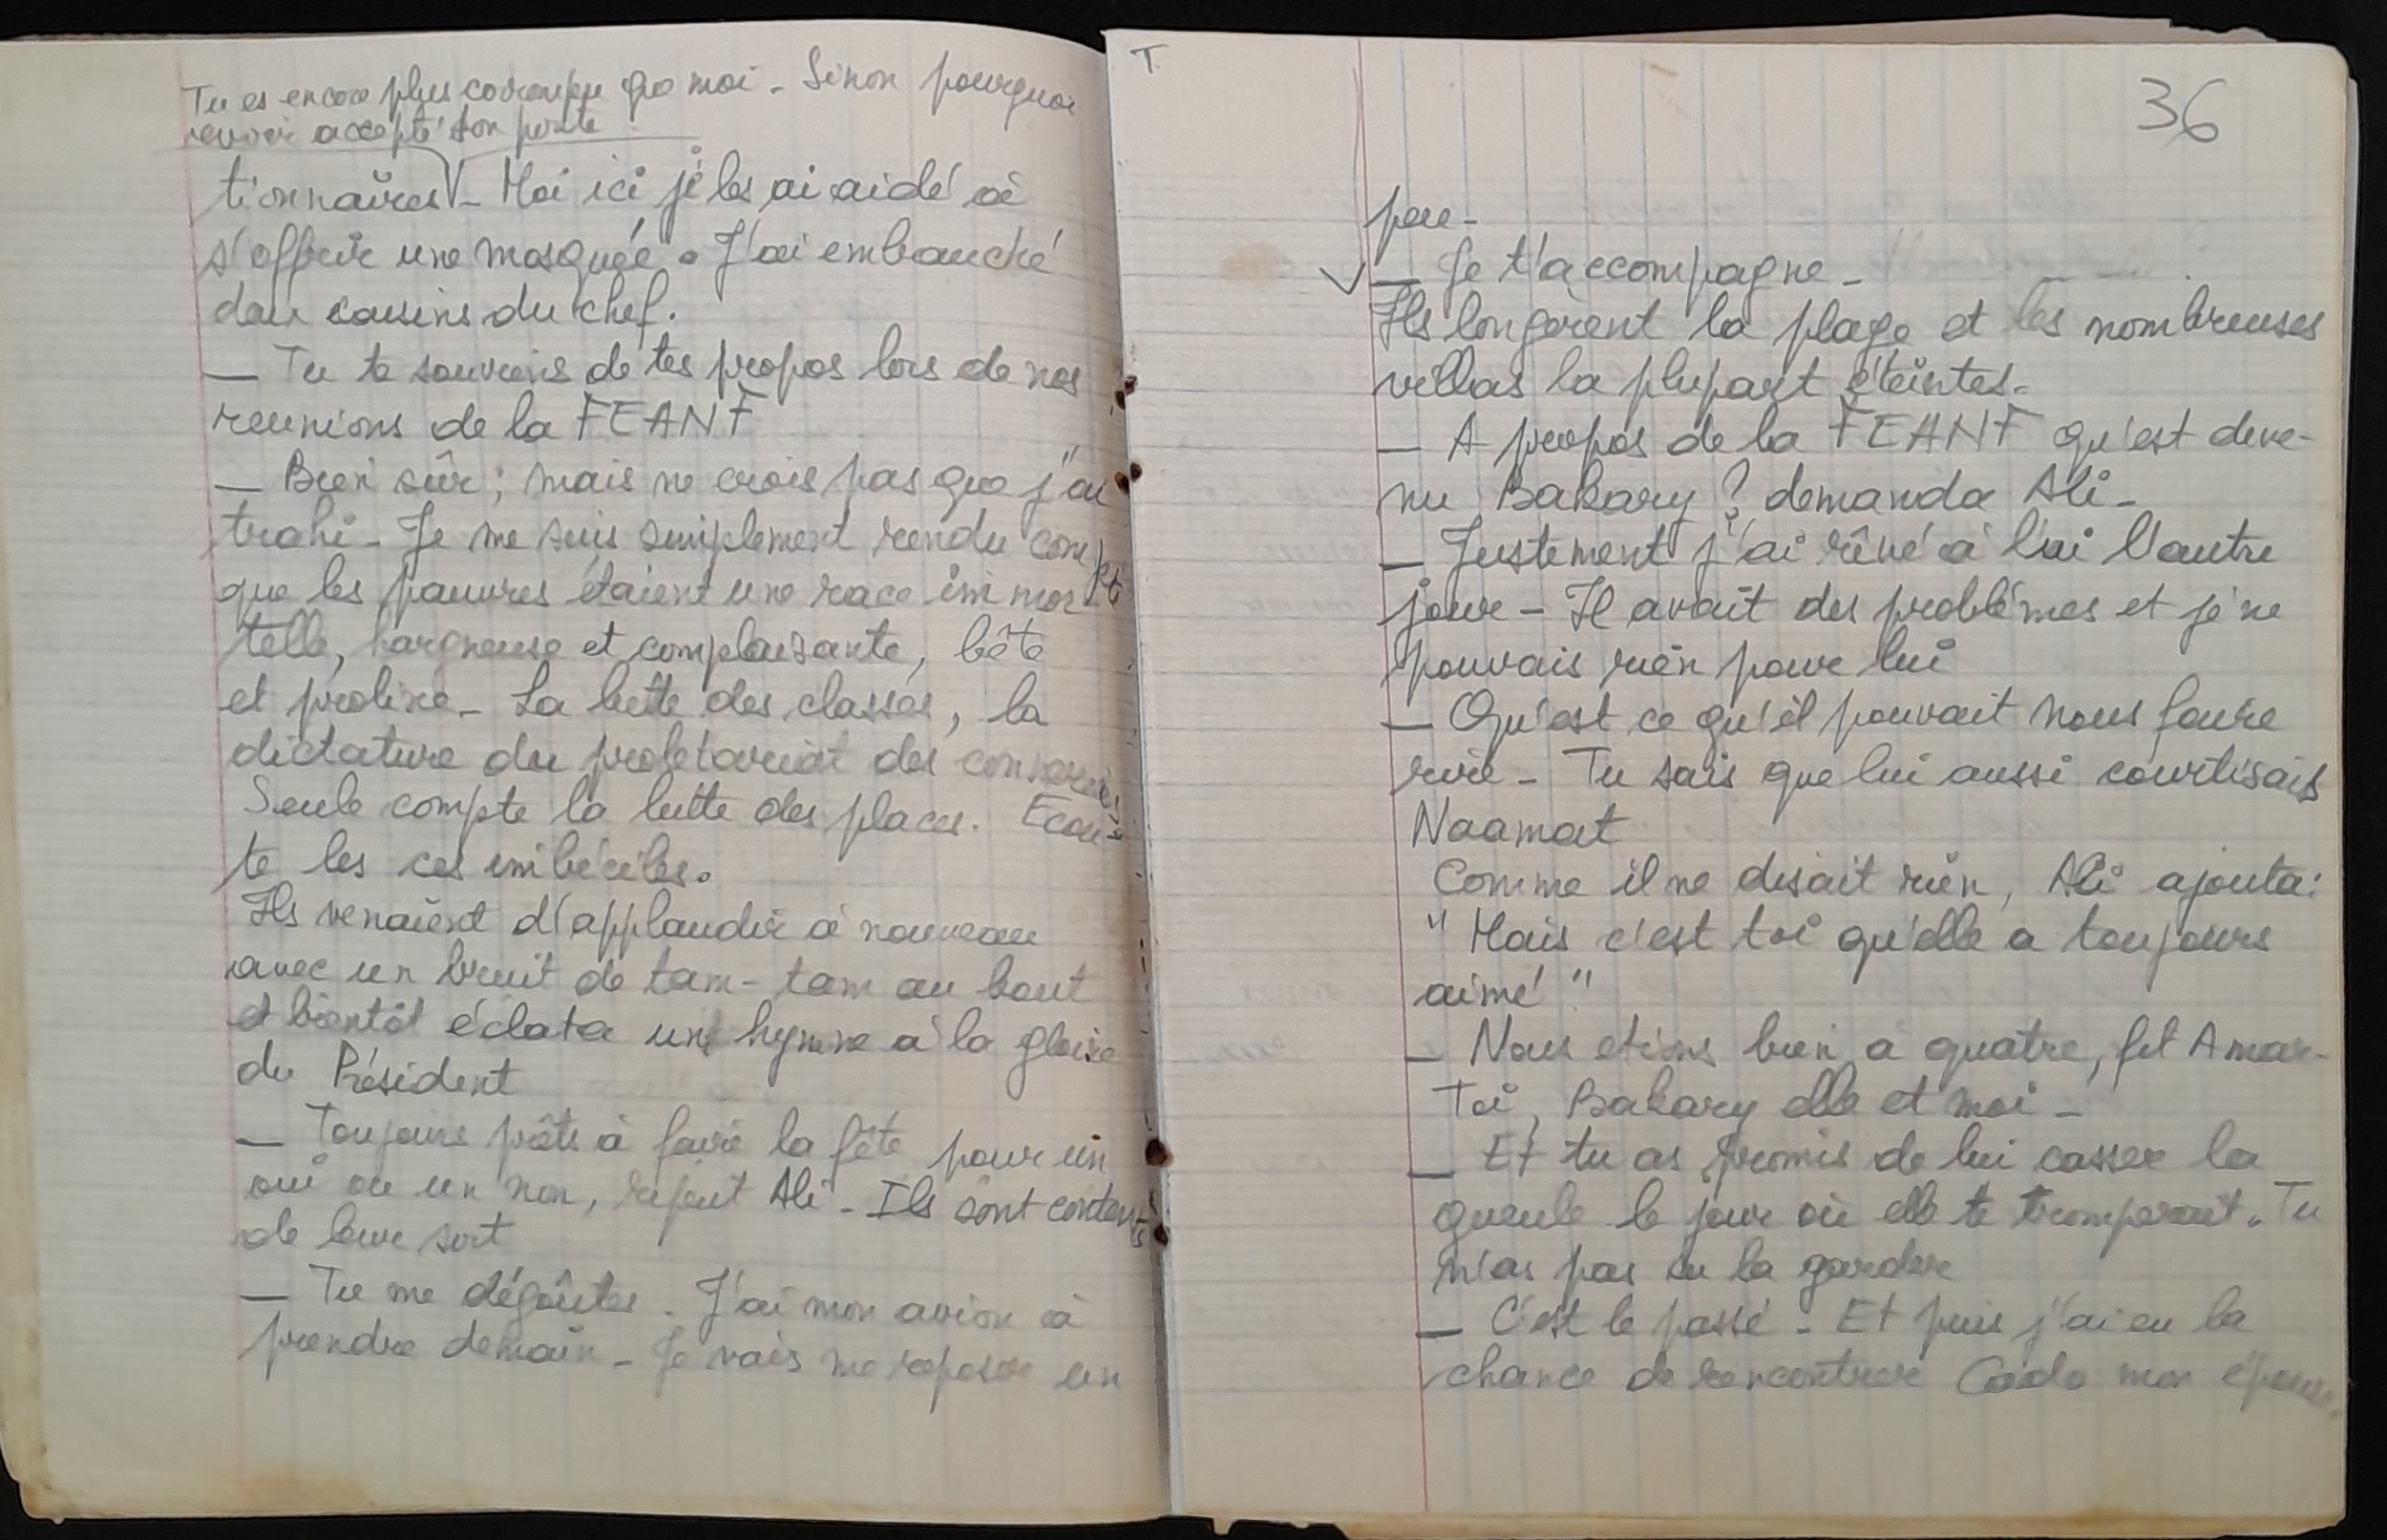 Tu es encore plus corrompu que moi - Sinon pourquoi
accepté ton poste
tionnaires - Moi ici je les ai aidé à
s'offrir une mosquée. J'ai embauché
deux cousins du chef.
— Tu te souviens de tes propos lors de nos
reunions de la FEANF
— Bien sûr ; mais ne crois pas que j'ai
trahi - Je me suis simplement rendu compte
que les pauvres étaient une race immor-
telle, hargneuse et complaisante, bête
et prolixe - La lutte des classes, la
dictature du proletariat des conneries
Seule compte la lutte des places. Ecou-
te les ces imbéciles.
Ils venaient d'applaudir à nouveau
avec un bruit de tam-tam au bout
et bientôt éclata un hymne à la gloire
du Président
— Toujours prêts à faire la fête pour un
oui ou un non, reprit Ali - Ils sont contents
de leur sort
— Tu me dégoûtes. J'ai mon avion à
prendre demain - Je vais me reposer un
T.
36
peu -
— Je t'accompagne -
Ils longèrent la plage et les nombreuses
villas la plupart éteintes.
— A propos de la FEANF qu'est deve-
nu Bakary ? demanda Ali -
— Justement j'ai rêvé à lui l'autre
jour - Il avait des problèmes et je ne
pouvais rien pour lui
— Qu'est ce qu'il pouvait nous faire
rire - Tu sais que lui aussi courtisais
Naamat
Comme il ne disait rien, Ali ajouta :
"Mais c'est toi qu'elle a toujours
aimé"
— Nous etions bien à quatre, fit Amar -
Toi, Bakary elle et moi -
— Et tu as promis de lui casser la
gueule le jour où elle te tromperait. Tu
n'as pas su la garder
— C'est le passé - Et puis j'ai eu la
chance de rencontrer Cado mon épouse.